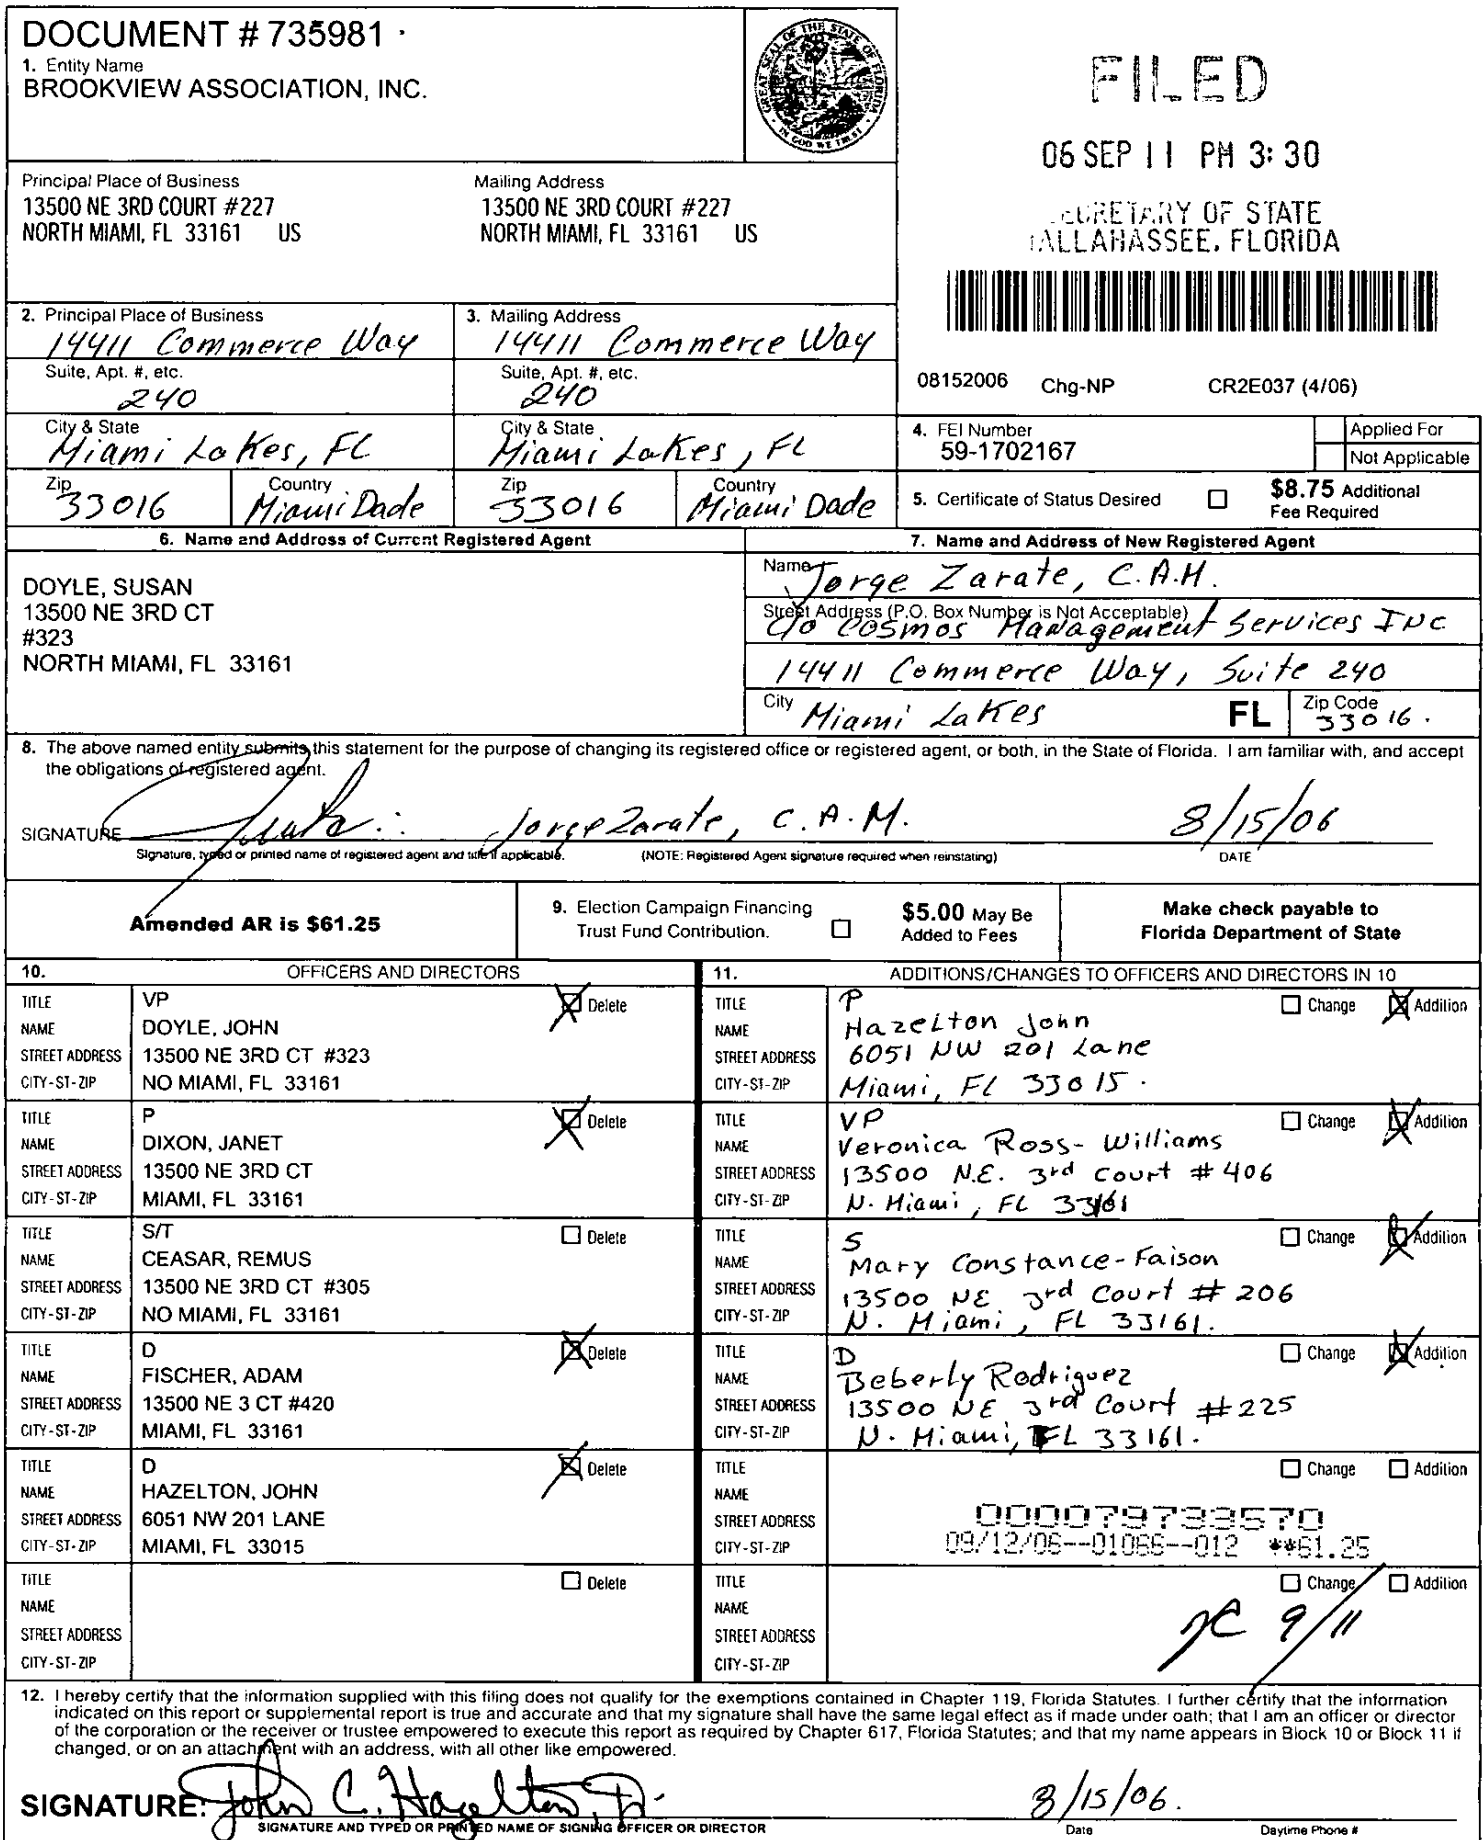 DOCUMENT # 735981
1. Entity Name
BROOKVIEW ASSOCIATION, INC.
GREAT SEAL OF THE STATE OF FLORIDA
IN GOD WE TRUST
FILED
06 SEP 11 PM 3:30
SECRETARY OF STATE
TALLAHASSEE, FLORIDA
Principal Place of Business
13500 NE 3RD COURT #227
NORTH MIAMI, FL 33161 US
Mailing Address
13500 NE 3RD COURT #227
NORTH MIAMI, FL 33161 US
2. Principal Place of Business
14411 Commerce Way
Suite, Apt. #, etc.
240
City & State
Miami Lakes, FL
Zip
33016
Country
Miami Dade
3. Mailing Address
14411 Commerce Way
Suite, Apt. #, etc.
240
City & State
Miami Lakes, FL
Zip
33016
Country
Miami Dade
08152006 Chg-NP CR2E037 (4/06)
4. FEI Number
59-1702167
Applied For
Not Applicable
5. Certificate of Status Desired
$8.75 Additional
Fee Required
6. Name and Address of Current Registered Agent
DOYLE, SUSAN
13500 NE 3RD CT
#323
NORTH MIAMI, FL 33161
7. Name and Address of New Registered Agent
Name Jorge Zarate, C.A.M.
Street Address (P.O. Box Number is Not Acceptable)
c/o Cosmos Management Services INC
14411 Commerce Way, Suite 240
City Miami Lakes FL Zip Code 33016.
8. The above named entity submits this statement for the purpose of changing its registered office or registered agent, or both, in the State of Florida. I am familiar with, and accept
the obligations of registered agent.
SIGNATURE Jorge Zarate, C.A.M. 8/15/06
Signature, typed or printed name of registered agent and title if applicable. (NOTE: Registered Agent signature required when reinstating) DATE
Amended AR is $61.25
9. Election Campaign Financing
Trust Fund Contribution.
$5.00 May Be
Added to Fees
Make check payable to
Florida Department of State
10. OFFICERS AND DIRECTORS
TITLE VP Delete
NAME DOYLE, JOHN
STREET ADDRESS 13500 NE 3RD CT #323
CITY-ST-ZIP NO MIAMI, FL 33161
TITLE P Delete
NAME DIXON, JANET
STREET ADDRESS 13500 NE 3RD CT
CITY-ST-ZIP MIAMI, FL 33161
TITLE S/T Delete
NAME CEASAR, REMUS
STREET ADDRESS 13500 NE 3RD CT #305
CITY-ST-ZIP NO MIAMI, FL 33161
TITLE D Delete
NAME FISCHER, ADAM
STREET ADDRESS 13500 NE 3 CT #420
CITY-ST-ZIP MIAMI, FL 33161
TITLE D Delete
NAME HAZELTON, JOHN
STREET ADDRESS 6051 NW 201 LANE
CITY-ST-ZIP MIAMI, FL 33015
TITLE Delete
NAME
STREET ADDRESS
CITY-ST-ZIP
11. ADDITIONS/CHANGES TO OFFICERS AND DIRECTORS IN 10
TITLE P Change Addition
NAME Hazelton John
STREET ADDRESS 6051 NW 201 Lane
CITY-ST-ZIP Miami, FL 33015.
TITLE VP Change Addition
NAME Veronica Ross-Williams
STREET ADDRESS 13500 N.E. 3rd Court # 406
CITY-ST-ZIP N. Miami, FL 33161
TITLE S Change Addition
NAME Mary Constance-Faison
STREET ADDRESS 13500 NE 3rd Court # 206
CITY-ST-ZIP N. Miami, FL 33161.
TITLE D Change Addition
NAME Beberly Rodriguez
STREET ADDRESS 13500 NE 3rd Court #225
CITY-ST-ZIP N. Miami, FL 33161.
TITLE Change Addition
NAME
STREET ADDRESS 000079733570
CITY-ST-ZIP 09/12/06--01066--012 **61.25
TITLE Change Addition
NAME
STREET ADDRESS 9/11
CITY-ST-ZIP
12. I hereby certify that the information supplied with this filing does not qualify for the exemptions contained in Chapter 119, Florida Statutes. I further certify that the information
indicated on this report or supplemental report is true and accurate and that my signature shall have the same legal effect as if made under oath; that I am an officer or director
of the corporation or the receiver or trustee empowered to execute this report as required by Chapter 617, Florida Statutes; and that my name appears in Block 10 or Block 11 if
changed, or on an attachment with an address, with all other like empowered.
SIGNATURE: John C. Hazelton, Jr. 8/15/06.
SIGNATURE AND TYPED OR PRINTED NAME OF SIGNING OFFICER OR DIRECTOR Date Daytime Phone #